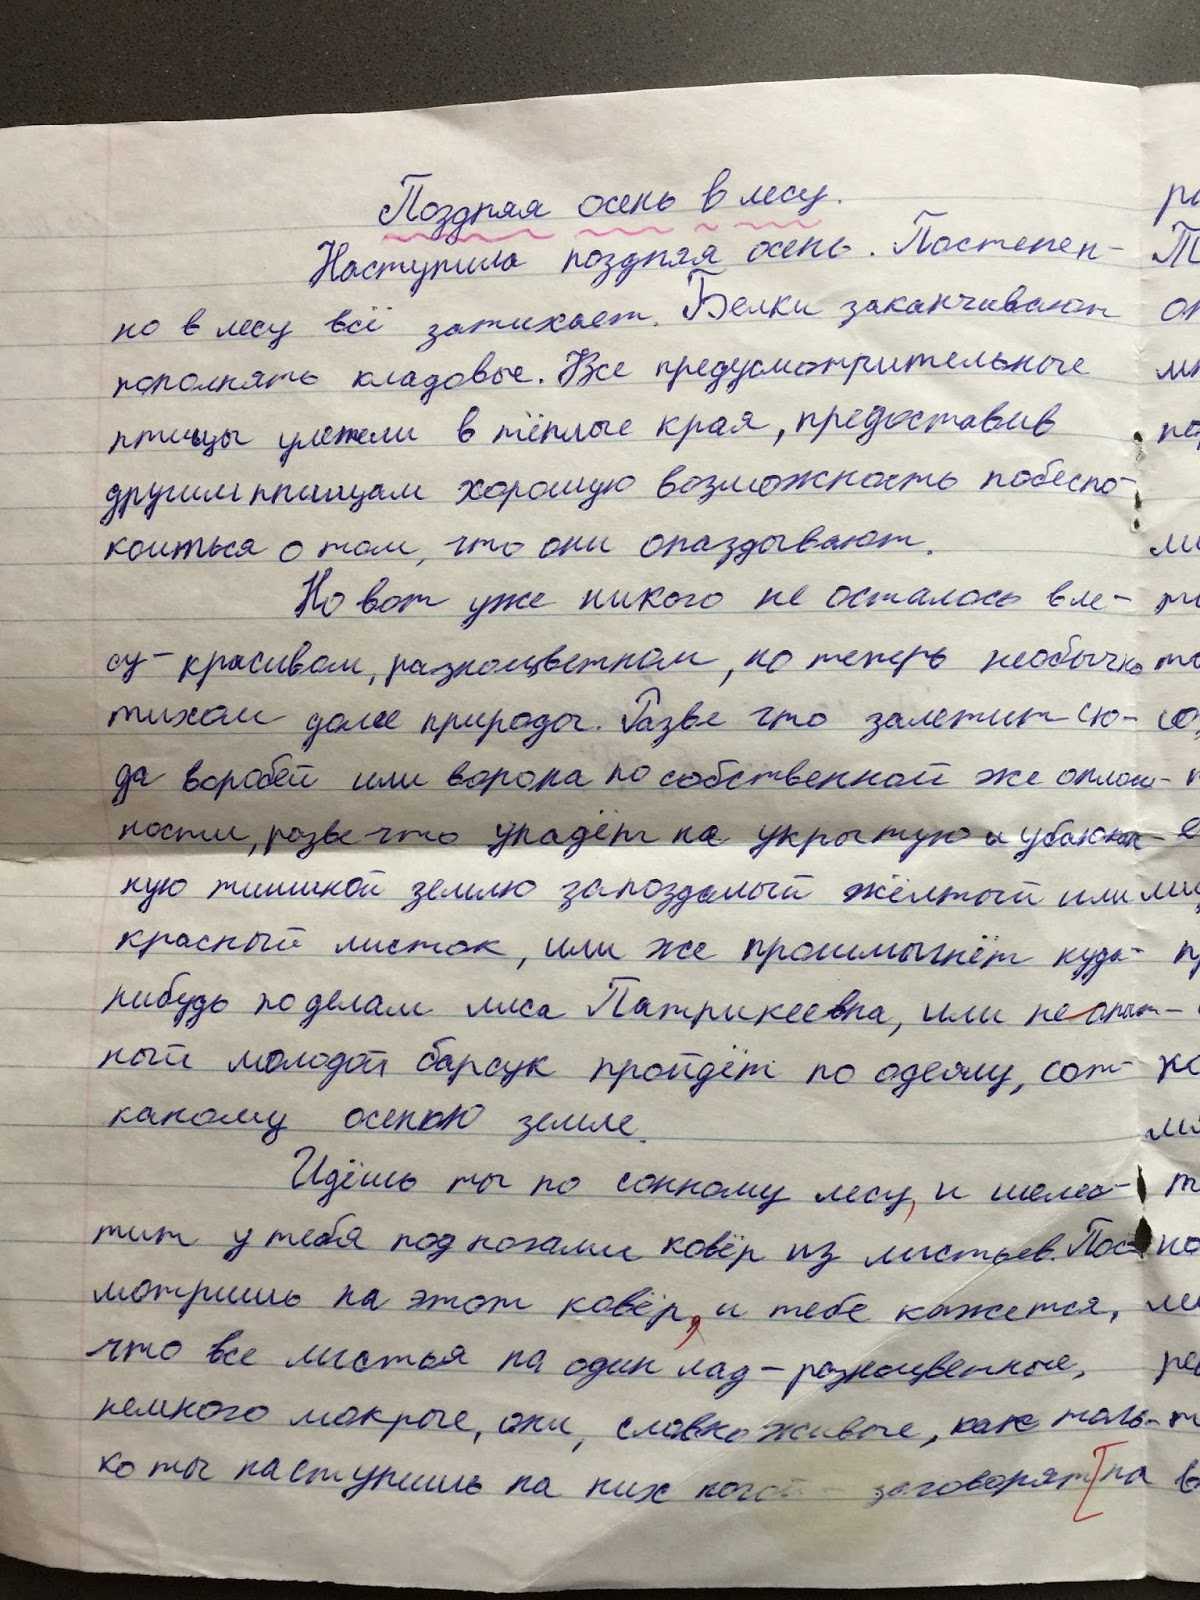 Поздняя осень в лесу.
Наступила поздняя осень. Постепен-
но в лесу всё затихает. Белки заканчивают
пополнять кладовые. Все предусмотрительные
птицы улетели в тёплые края, предоставив
другим птицам хорошую возможность побеспо-
коиться о том, что они опаздывают.
Но вот уже никого не осталось в ле-
су - красивом, разноцветном, но теперь необычно
тихом доме природы. Разве что залетит сю-
да воробей или ворона по собственной же оплош-
ности, разве что упадёт на укрытую и убаюкан-
ную тишиной землю запоздалый жёлтый или
красный листок, или же прошмыгнёт куда-
нибудь по делам лиса Патрикеевна, или не опыт-
ный молодой барсук пройдёт по одеялу, сот-
каному осенью земле.
Идёшь ты по сонному лесу, и шелес-
тит у тебя под ногами ковёр из листьев. Пос-
мотришь на этот ковёр, и тебе кажется,
что все листья на один лад - разноцветные,
немного мокрые, они, словно живые, как толь-
ко ты наступишь на них заговорят [на